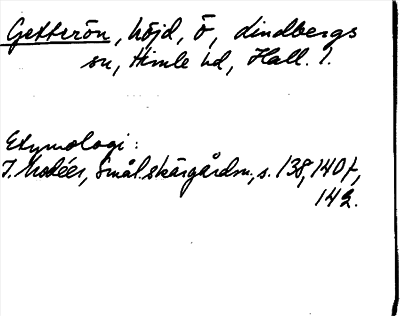 Getterön, höjd, ö, Lindbergs
sn, Himle hd, Hall. l.
Etymologi:
I. Modéer, Smål. skärgårdn, s. 138, 140 f,
142.